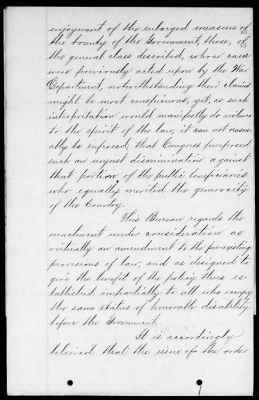 enjoyment of the enlarged measure of
the bounty of the Government, those, of
the general class described, whose cases
were previously acted upon by the War
Department, notwithstanding their claims
might be most conspicuous, yet, as such
interpretation would manifestly do violence
to the spirit of the law, it can not reason-
ably be inferred, that Congress purposed
such an unjust discrimination against
that portion of the public beneficiaries
who equally merited the generosity
of the Country.
This Bureau regards the
enactment under consideration as
virtually an amendment to the pre-existing
provisions of law, and as designed to
give the benefit of the policy thus es-
tablished impartially to all who occupy
the same status of honorable disability
before the Government.
It is accordingly
believed that the issue of the order